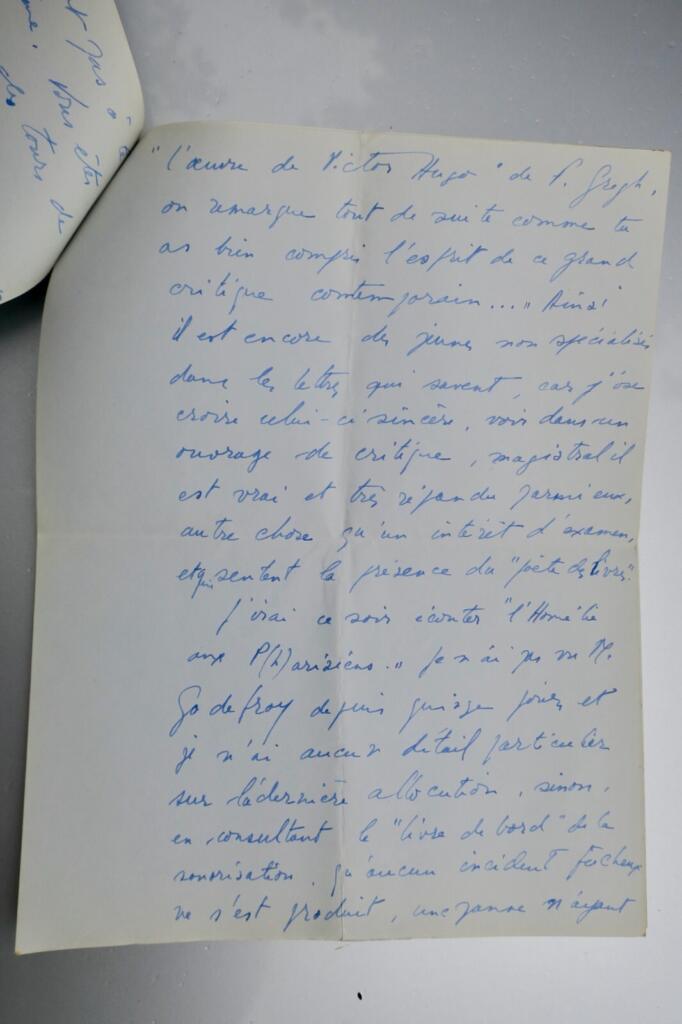 t pas à
me. Vous êtes
des tours de
"L'œuvre de Victor Hugo" de F. Gregh,
on remarque tout de suite comme tu
as bien compris l'esprit de ce grand
critique contemporain..." Ainsi
il est encore des jeunes non spécialisés
dans les lettres qui savent, car j'ose
croire celui-ci sincère, voir dans un
ouvrage de critique, magistral il
est vrai et très répandu parmi eux,
autre chose qu'un intérêt d'examen,
et qui sentent la présence du "poète des livres".
J'irai ce soir écouter "l'Homélie
aux P(h)arisiens." Je n'ai pas vu M.
Godefroy depuis quinze jours et
je n'ai aucun détail particulier
sur la dernière allocution, sinon,
en consultant le "livre de bord" de la
sonorisation, qu'aucun incident fâcheux
ne s'est produit, une panne n'ayant